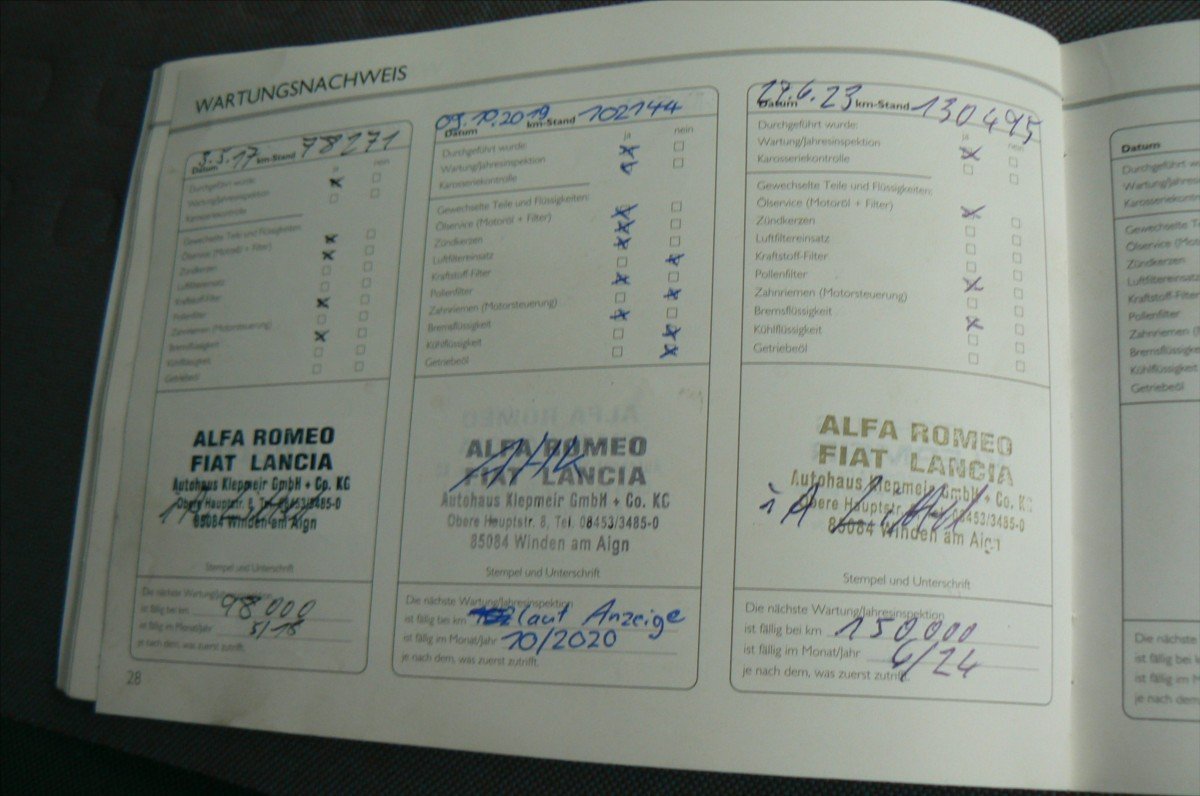 WARTUNGSNACHWEIS
Datum 3.5.17 km-Stand 78271
ja nein
Durchgeführt wurde:
Wartung/Jahresinspektion
Karosseriekontrolle
Gewechselte Teile und Flüssigkeiten:
Ölservice (Motoröl + Filter)
Zündkerzen
Luftfiltereinsatz
Kraftstoff-Filter
Pollenfilter
Zahnriemen (Motorsteuerung)
Bremsflüssigkeit
Kühlflüssigkeit
Getriebeöl
ALFA ROMEO
FIAT LANCIA
Autohaus Klepmeir GmbH + Co. KG
Obere Hauptstr. 8, Tel. 08453/3485-0
85084 Winden am Aign
Stempel und Unterschrift
Die nächste Wartung/Jahresinspektion
ist fällig bei km 98.000
ist fällig im Monat/Jahr 5/18
je nach dem, was zuerst zutrifft.
28
Datum 09.10.2019 km-Stand 102144
ja nein
Durchgeführt wurde:
Wartung/Jahresinspektion
Karosseriekontrolle
Gewechselte Teile und Flüssigkeiten:
Ölservice (Motoröl + Filter)
Zündkerzen
Luftfiltereinsatz
Kraftstoff-Filter
Pollenfilter
Zahnriemen (Motorsteuerung)
Bremsflüssigkeit
Kühlflüssigkeit
Getriebeöl
ALFA ROMEO
FIAT LANCIA
Autohaus Klepmeir GmbH + Co. KG
Obere Hauptstr. 8, Tel. 08453/3485-0
85084 Winden am Aign
Stempel und Unterschrift
Die nächste Wartung/Jahresinspektion
ist fällig bei km laut Anzeige
ist fällig im Monat/Jahr 10/2020
je nach dem, was zuerst zutrifft.
Datum km-Stand 130495
ja nein
Durchgeführt wurde:
Wartung/Jahresinspektion
Karosseriekontrolle
Gewechselte Teile und Flüssigkeiten:
Ölservice (Motoröl + Filter)
Zündkerzen
Luftfiltereinsatz
Kraftstoff-Filter
Pollenfilter
Zahnriemen (Motorsteuerung)
Bremsflüssigkeit
Kühlflüssigkeit
Getriebeöl
ALFA ROMEO
FIAT LANCIA
Autohaus Klepmeir GmbH + Co. KG
Obere Hauptstr. 8, Tel. 08453/3485-0
85084 Winden am Aign
Stempel und Unterschrift
Die nächste Wartung/Jahresinspektion
ist fällig bei km 150.000
ist fällig im Monat/Jahr 6/24
je nach dem, was zuerst zutrifft.
Datum
Durchgeführt
Wartung/Jahres
Karosseriekontr
Gewechselte T
Ölservice (Moto
Zündkerzen
Luftfiltereinsatz
Kraftstoff-Filter
Pollenfilter
Zahnriemen (M
Bremsflüssigkeit
Kühlflüssigkeit
Getriebeöl
Die nächste
ist fällig bei k
ist fällig im M
je nach dem